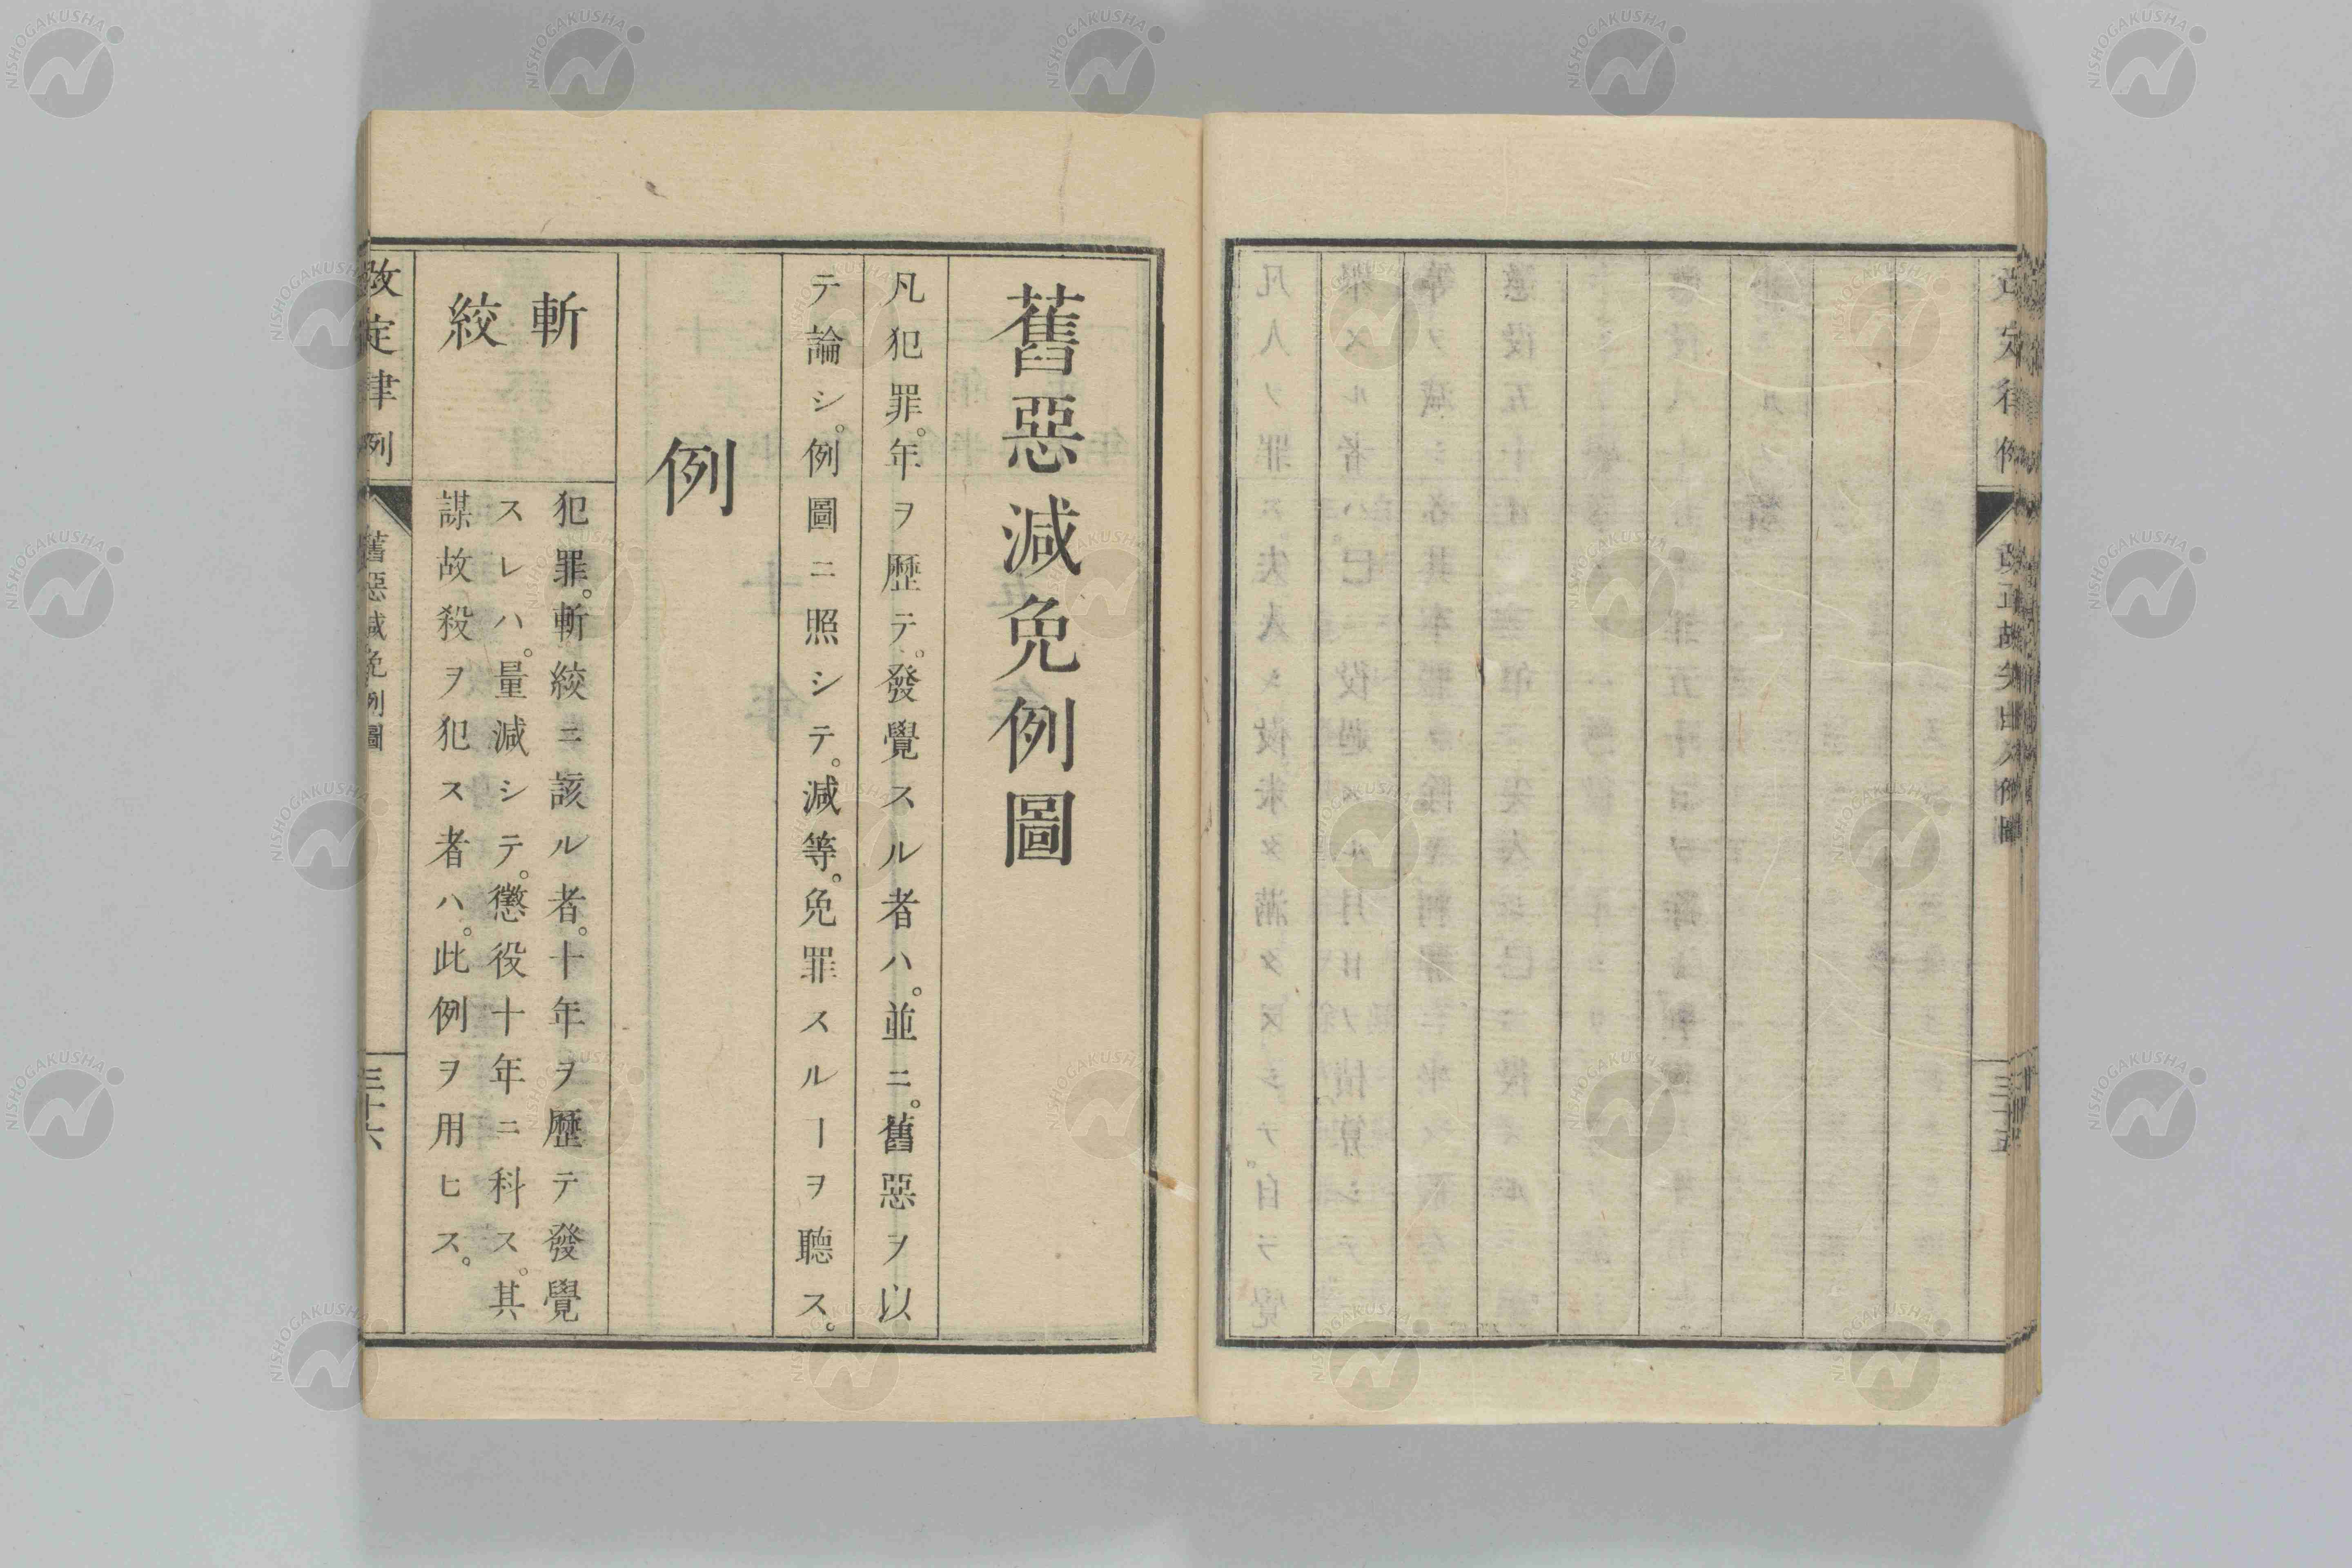 舊惡減免例圖
凡犯罪。年ヲ歷テ。發覺スル者ハ。並ニ。舊惡ヲ以
テ論シ。例圖ニ照シテ。減等。免罪スルーヲ聽ス。
例
斬
絞
犯罪。斬絞ニ該ル者。十年ヲ歷テ發覺
スレハ。量減シテ。懲役十年ニ科ス。其
謀故殺ヲ犯ス者ハ。此例ヲ用ヒス。
改定律例
舊惡減免例圖
三十六
三十五
NISHOGAKUSHA